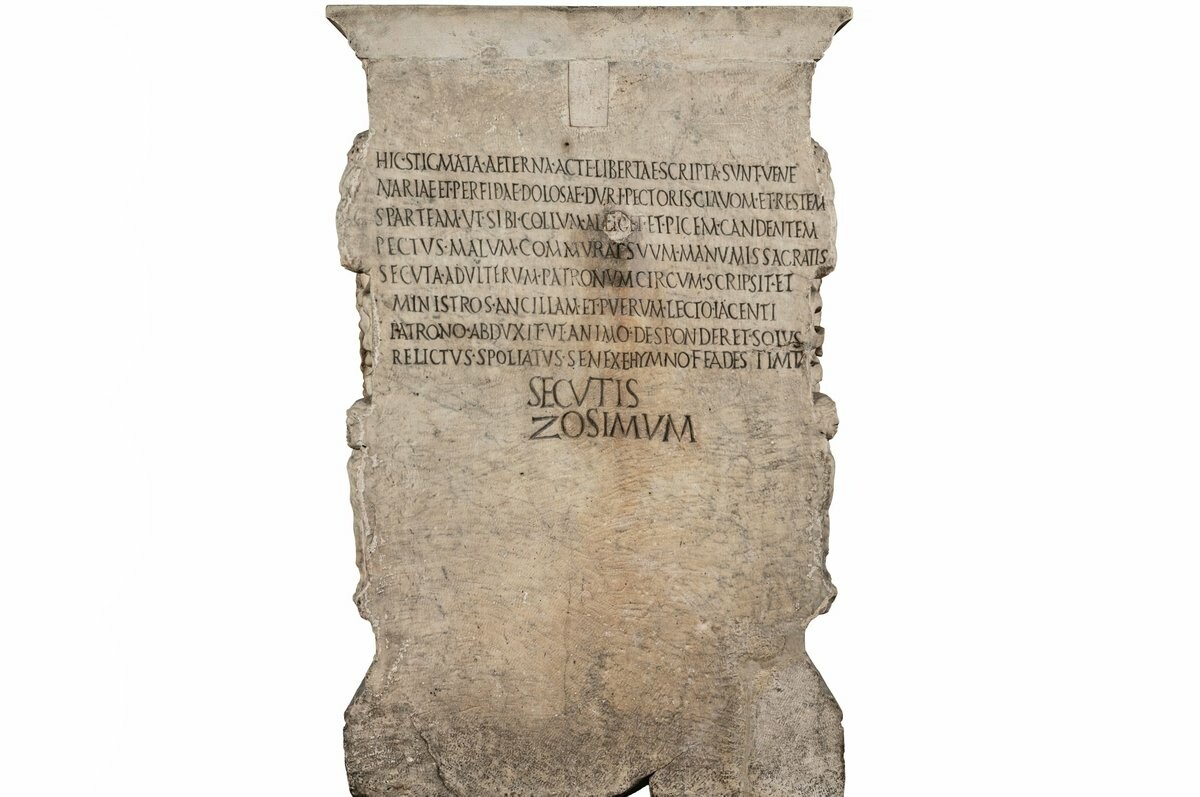 HIC·STIGMATA·AETERNA·ACTE·LIBERTAE·SCRIPTA·SVNT·VENE
NARIAE·ET·PERFIDAE·DOLOSAE·DVRI·PECTORIS·CLAVOM·ET·RESTEM
SPARTEAM·VT·SIBI·COLLVM·ALLIGET·ET·PICEM·CANDENTEM
PECTVS·MALVM·COMMVRAT·SVVM·MANVMISSA·GRATIS
SECVTA·ADVLTERVM·PATRONVM·CIRCVM·SCRIPSIT·ET
MINISTROS·ANCILLAM·ET·PVERVM·LECTO·IACENTI
PATRONO·ABDVXIT·VT·ANIMO·DESPONDERET·SOLVS
RELICTVS·SPOLIATVS·SENEX·E·HYMNO
SECVTIS
ZOSIMVM